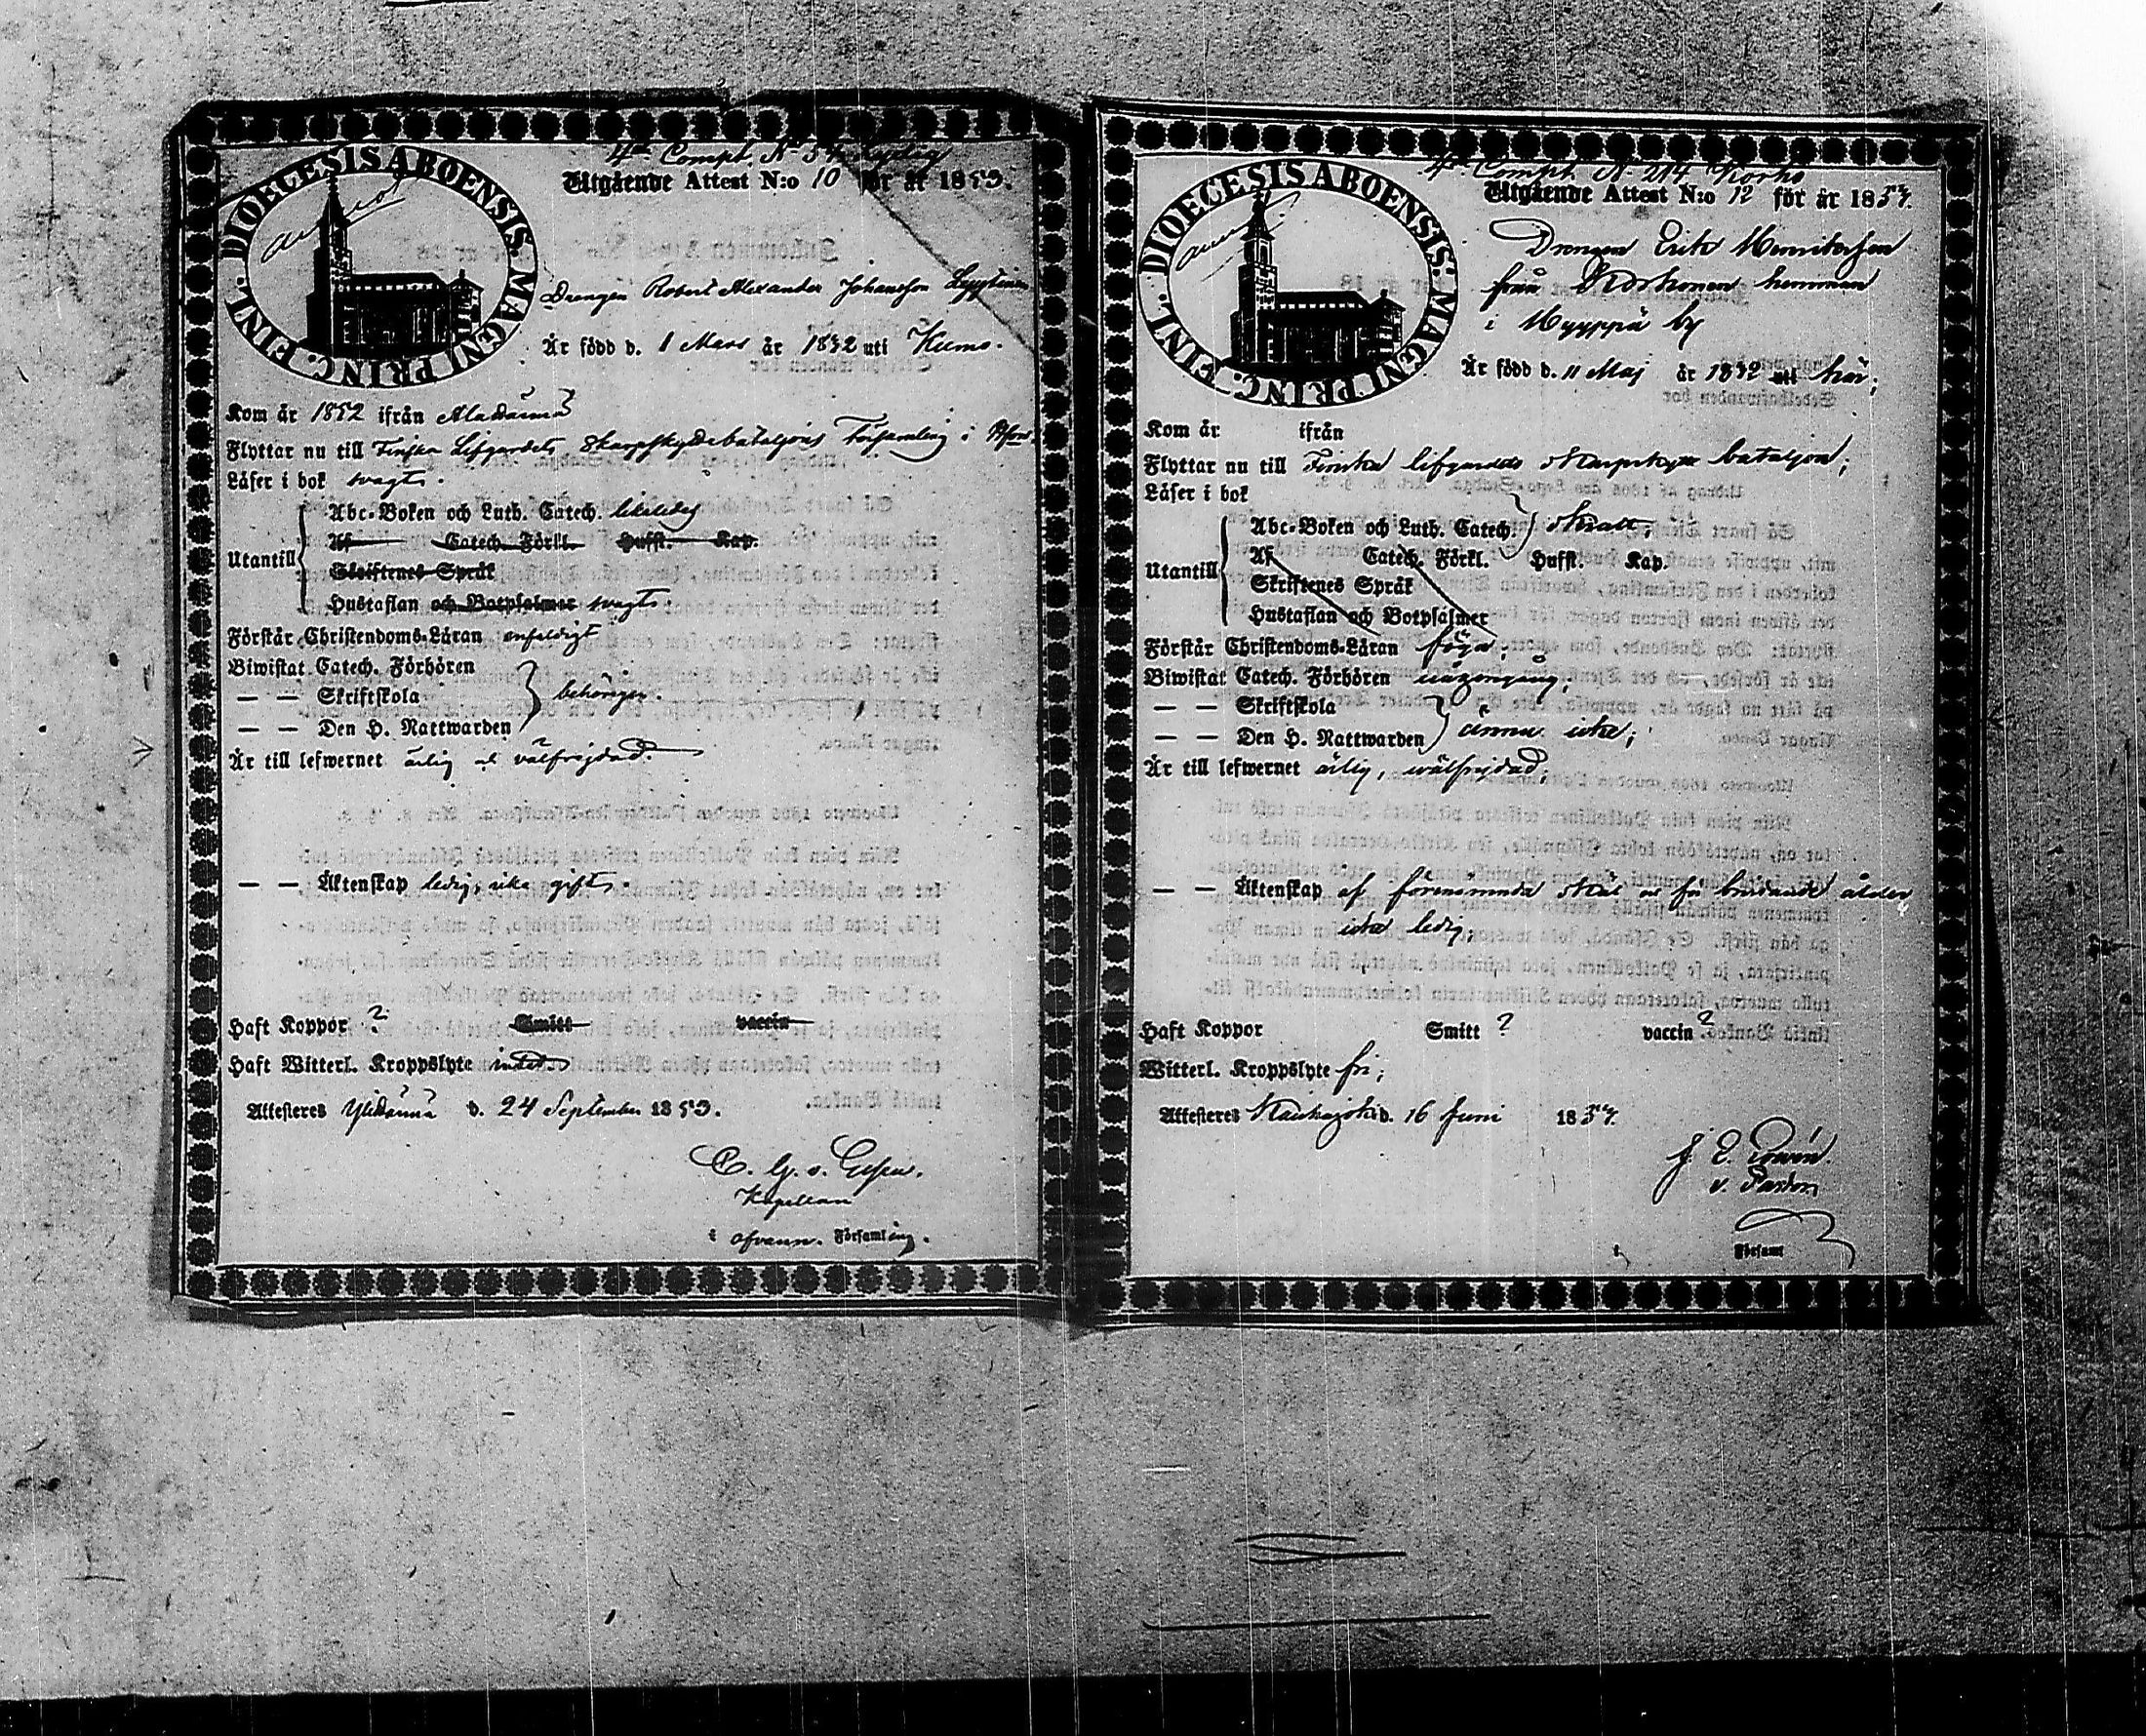 4de Comp. No
Utgående Attest N:o 10 för år 1853.
DIOECESIS ABOENSIS. MAGNI PRINC. FINL.
Drengen Robert Alexander Johansson
Är född d. 1 Mars år 1832 uti Kumo.
Kom år 1852 ifrån
Flyttar nu till Finska Lifgardets Skarpskyttebataljons Församling i Hfors.
Läser i bok svagt.
Abc-Boken och Luth. Catech. likaledes
Af Catech. Förkl. Hufst. Kap.
Utantill
Skriftenes Språk
Hustaflan och Botpsalmer svagt
Förstår Christendoms-Läran enfaldigt
Biwistat Catech. Förhören
— — Skriftskola behörigen.
— — Den H. Nattwarden
Är till lefwernet ärlig och välfrejdad.
— — Äktenskap ledig, icke gift.
Haft Koppor ? Smitt vaccin
Haft Witterl. Kroppslyte intet
Attesteras d. 24 September 1853.
Kapellan
i ofvann. Församling.
4de Comp. No 214 Korho
Utgående Attest N:o 12 för år 1854.
DIOECESIS ABOENSIS. MAGNI PRINC. FINL.
Drengen Erik Henriksson
från Korhonen hemman
i Hyyppä by
Är född d. 11 Maj år 1832 uti här;
Kom år ifrån
Flyttar nu till Finska lifgardets skarpskytte bataljon;
Läser i bok
Abc-Boken och Luth. Catech. svagt;
Af Catech. Förkl. Hufst. Kap.
Utantill
Skriftenes Språk
Hustaflan och Botpsalmer
Förstår Christendoms-Läran föga;
Biwistat Catech. Förhören någongång;
— — Skriftskola
— — Den H. Nattwarden ännu icke;
Är till lefwernet ärlig, wälfrejdad;
— — Äktenskap af förenämnda skäl och för bristande ålder
icke ledig;
Haft Koppor Smitt ? vaccin ?
Witterl. Kroppslyte fri;
Attesteras Kauhajoki d. 16 Juni 1854.
v. Pastor
i Församl